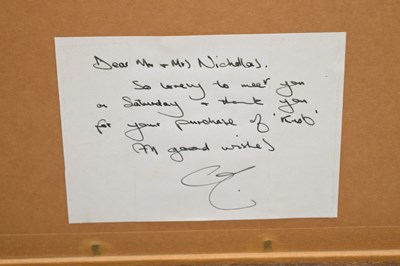 Dear Mr & Mrs Nicholas.
So lovely to meet you
on Saturday & thank you
for your purchase of
All good wishes